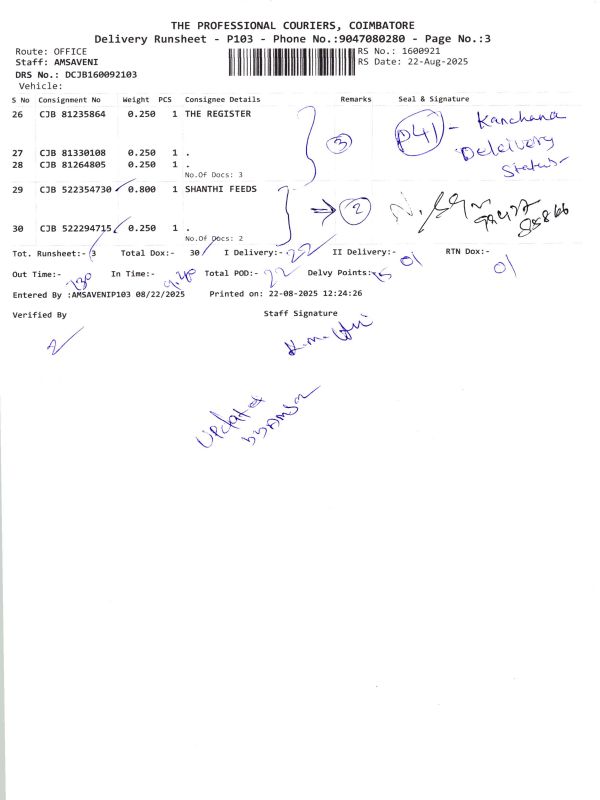 THE PROFESSIONAL COURIERS, COIMBATORE
Delivery Runsheet - P103 - Phone No.:9047080280 - Page No.:3
Route: OFFICE
RS No.: 1600921
Staff: AMSAVENI
RS Date: 22-Aug-2025
DRS No.: DCJB160092103
Vehicle:
S No Consignment No Weight PCS Consignee Details Remarks Seal & Signature
26 CJB 81235864 0.250 1 THE REGISTER
P41 - Kanchana
Delcivery
Status-
3
27 CJB 81330108 0.250 1 .
28 CJB 81264805 0.250 1 .
No.Of Docs: 3
29 CJB 522354730 0.800 1 SHANTHI FEEDS
2
30 CJB 522294715 0.250 1 .
No.Of Docs: 2
Tot. Runsheet:- 3 Total Dox:- 30 I Delivery:- 22 II Delivery:- 01 RTN Dox:- 01
Out Time:- 730 In Time:- 9.40 Total POD:- 22 Delvy Points:- 15
Entered By :AMSAVENIP103 08/22/2025 Printed on: 22-08-2025 12:24:26
Verified By Staff Signature
Updated